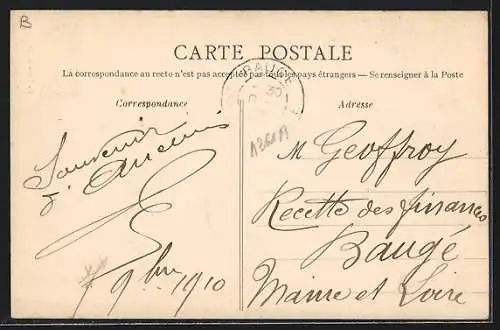 B
CARTE POSTALE
La correspondance au recto n'est pas acceptée par tous les pays étrangers — Se renseigner à la Poste
BAUGÉ
30
Correspondance
Adresse
A260A
Souvenir
d'Ancenis
9bre 1910
M Geoffroy
Recette des finances
Baugé
Maine et Loire